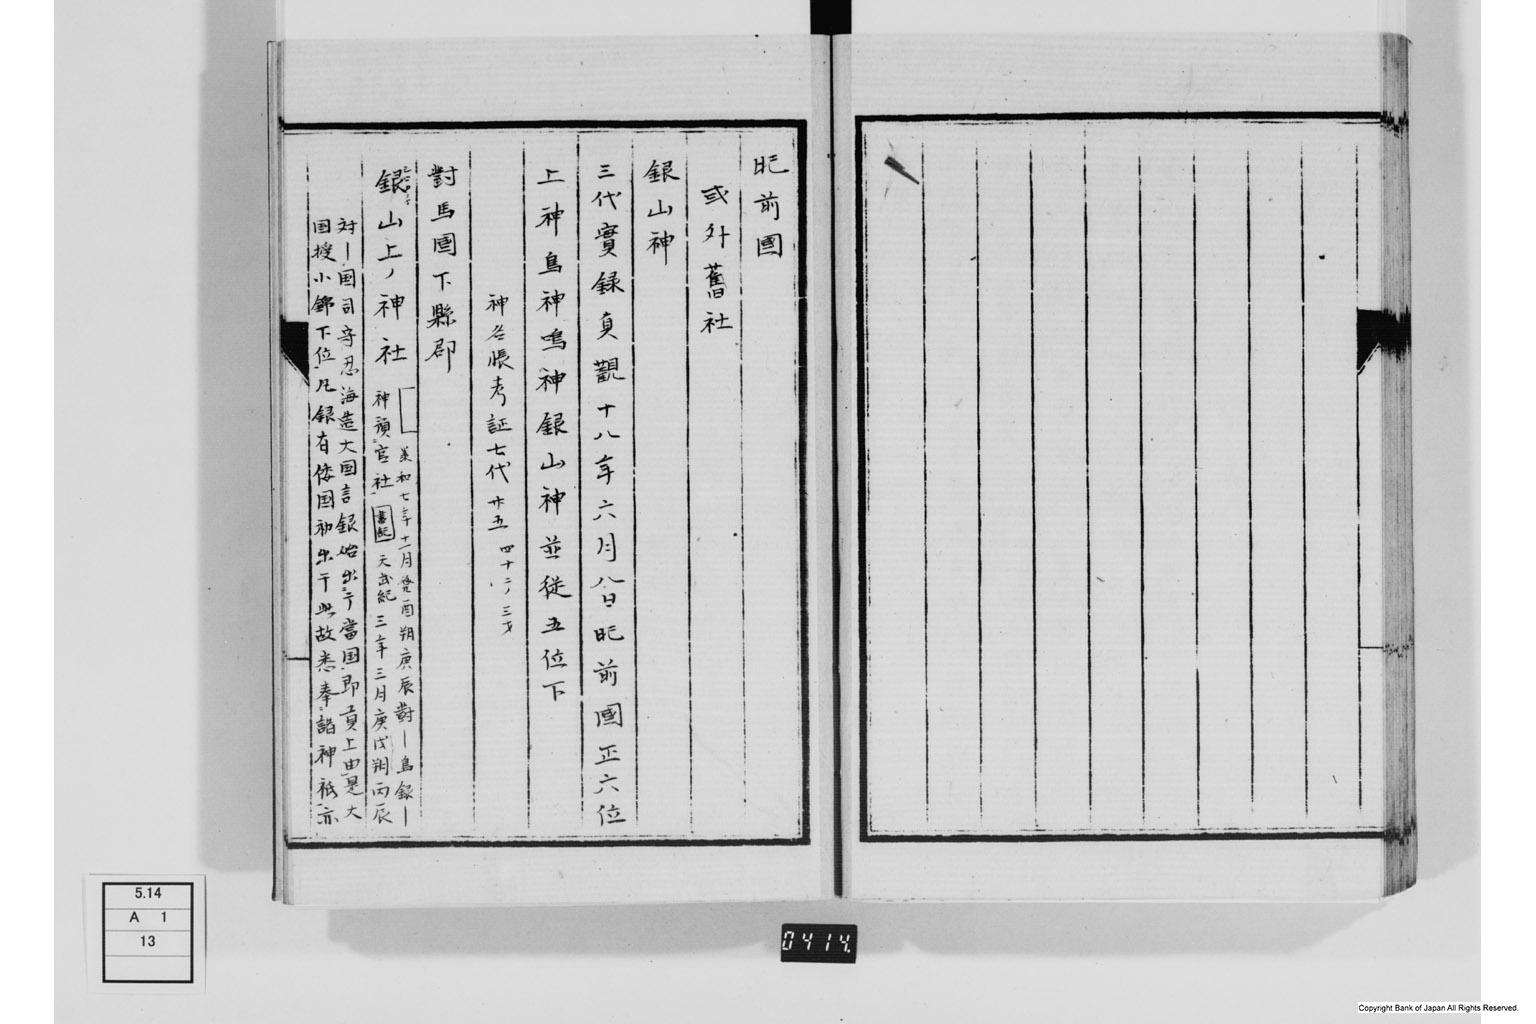 肥前國
式外舊社
銀山神
三代實録貞觀十八年六月八日肥前國正六位
上神島神鳴神銀山神並従五位下
神名帳考証七代廿五
對馬國下縣郡
銀山上ノ神社
承和七年十一月癸酉朔庚辰對―島銀―
神預官社 書紀 天武紀三年三月庚戌朔丙辰
対―国司守忍海造大国言銀始出于當国即貢上由是大
国授小錦下位凡銀有倭国初出于此故悉奉諸神祇亦
5.14
A 1
13
0414
Copyright Bank of Japan All Rights Reserved.